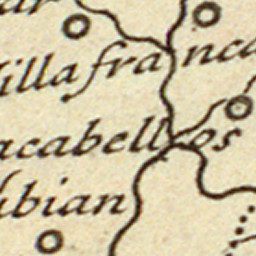 ar
illafranca
acabellos
bian